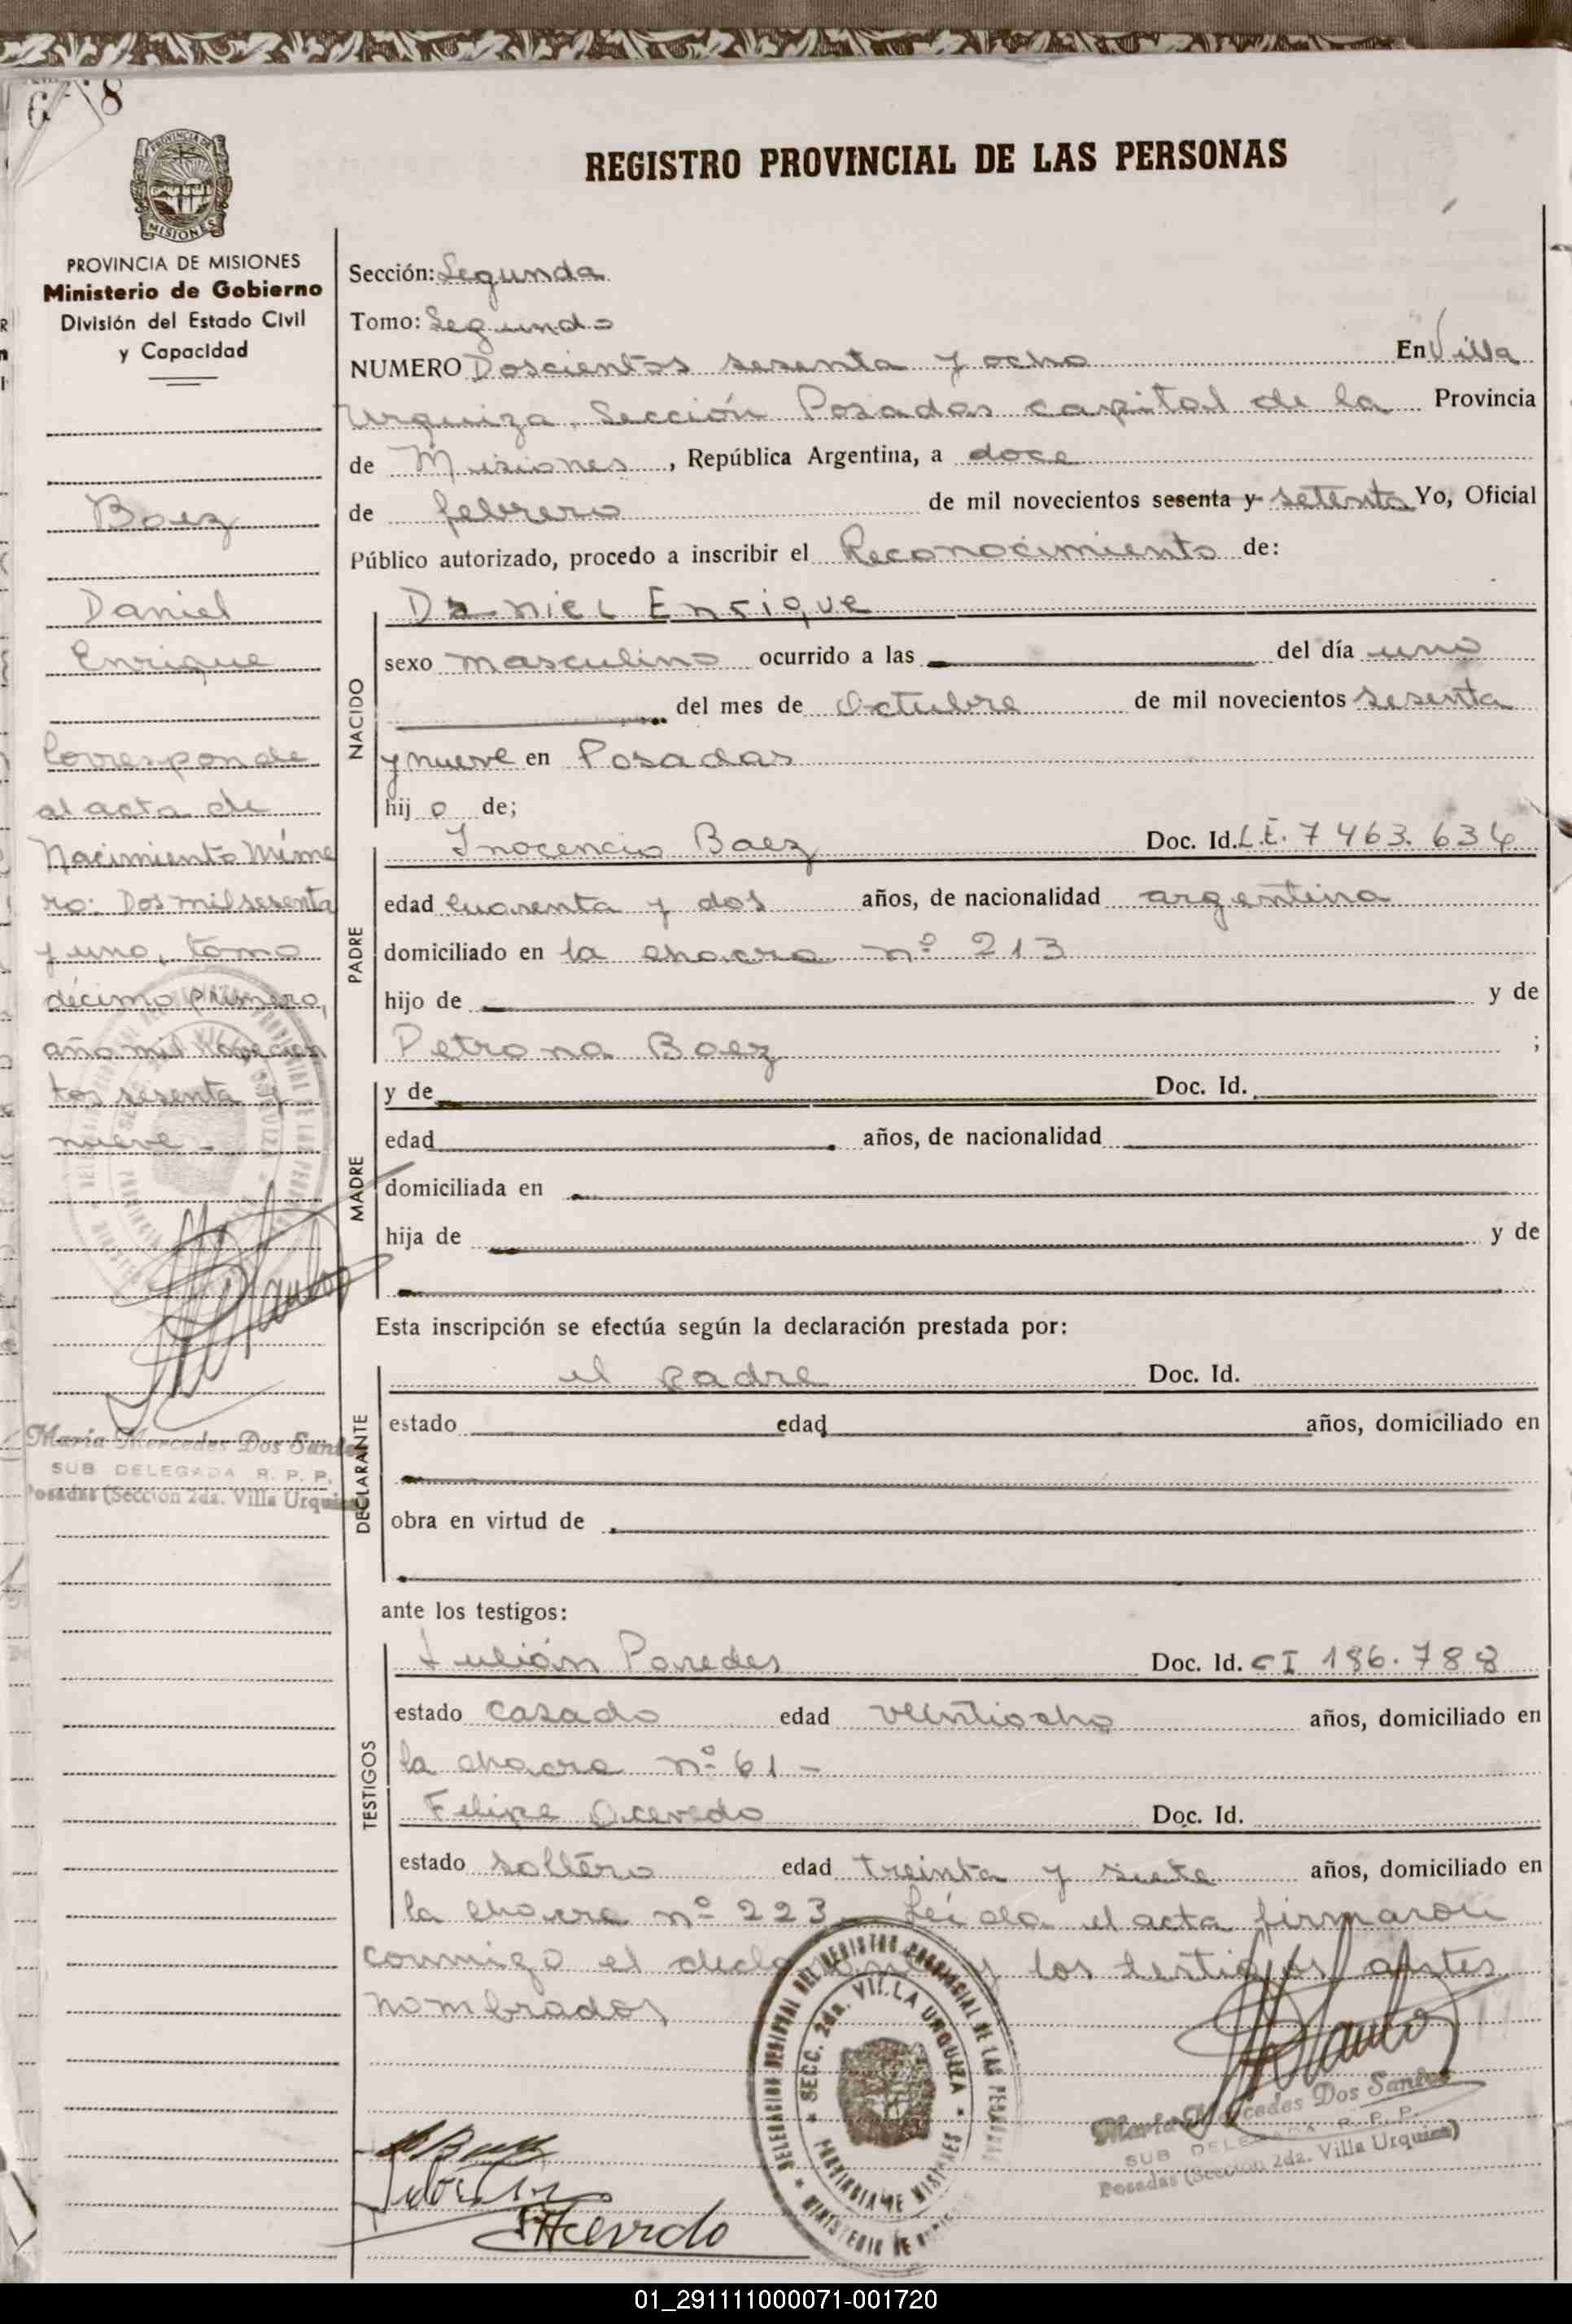 68
REGISTRO PROVINCIAL DE LAS PERSONAS
PROVINCIA DE MISIONES
Ministerio de Gobierno
División del Estado Civil
y Capacidad
Baez
Daniel
Enrique
Corresponde
al acta de
Nacimiento Núme
ro: Dos mil sesenta
y uno, tomo
décimo primero,
año mil novecien
tos sesenta y
nueve -
Maria Mercedes Dos Santos
SUB DELEGADA R. P. P.
Posadas (Sección 2da. Villa Urquiza
Sección: Segunda
Tomo: Segundo
NUMERO Doscientos sesenta y ocho En Villa
Urquiza, Sección Posadas capital de la Provincia
de Misiones, República Argentina, a doce
de febrero de mil novecientos sesenta y setenta Yo, Oficial
Público autorizado, procedo a inscribir el Reconocimiento de:
NACIDO
Daniel Enrique
sexo masculino ocurrido a las del día uno
del mes de Octubre de mil novecientos sesenta
y nueve en Posadas
hij o de;
PADRE
Inocencio Baez Doc. Id. L.E. 7463.634
edad cuarenta y dos años, de nacionalidad argentina
domiciliado en la chacra nº 213
hijo de y de
Petrona Baez ;
MADRE
y de Doc. Id.
edad años, de nacionalidad
domiciliada en
hija de y de
Esta inscripción se efectúa según la declaración prestada por:
DECLARANTE
el padre Doc. Id.
estado edad años, domiciliado en
obra en virtud de
ante los testigos:
TESTIGOS
Julián Paredes Doc. Id. CI 186.788
estado casado edad veintiocho años, domiciliado en
la chacra nº 61 -
Felipe Acevedo Doc. Id.
estado soltero edad treinta y siete años, domiciliado en
la chacra nº 223. Leída el acta firmaron
conmigo el declarante y los testigos antes
nombrados
DELEGACION REGIONAL DEL REGISTRO PROVINCIAL DE LAS PERSONAS
SECC. 2da. VILLA URQUIZA
PROVINCIA DE MISIONES
MINISTERIO DE
Maria Mercedes Dos Santos
SUB DELEGADA R. P. P.
Posadas (Sección 2da. Villa Urquiza)
FAcevedo
01_291111000071-001720